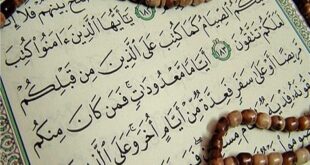 بَيْنَهُمْ فَلَا
١٨٢ يَٰٓأَيُّهَا ٱلَّذِينَ ءَامَنُوا۟ كُتِبَ
ٱلصِّيَامُ كَمَا كُتِبَ عَلَى ٱلَّذِينَ مِن قَبْلِكُمْ
لَعَلَّكُمْ تَتَّقُونَ ١٨٣ أَيَّامًا مَّعْدُودَٰتٍ فَمَن كَانَ مِنكُم
مَّرِيضًا أَوْ عَلَىٰ سَفَرٍ فَعِدَّةٌ مِّنْ أَيَّامٍ أُخَرَ وَعَلَى ٱلَّذِينَ